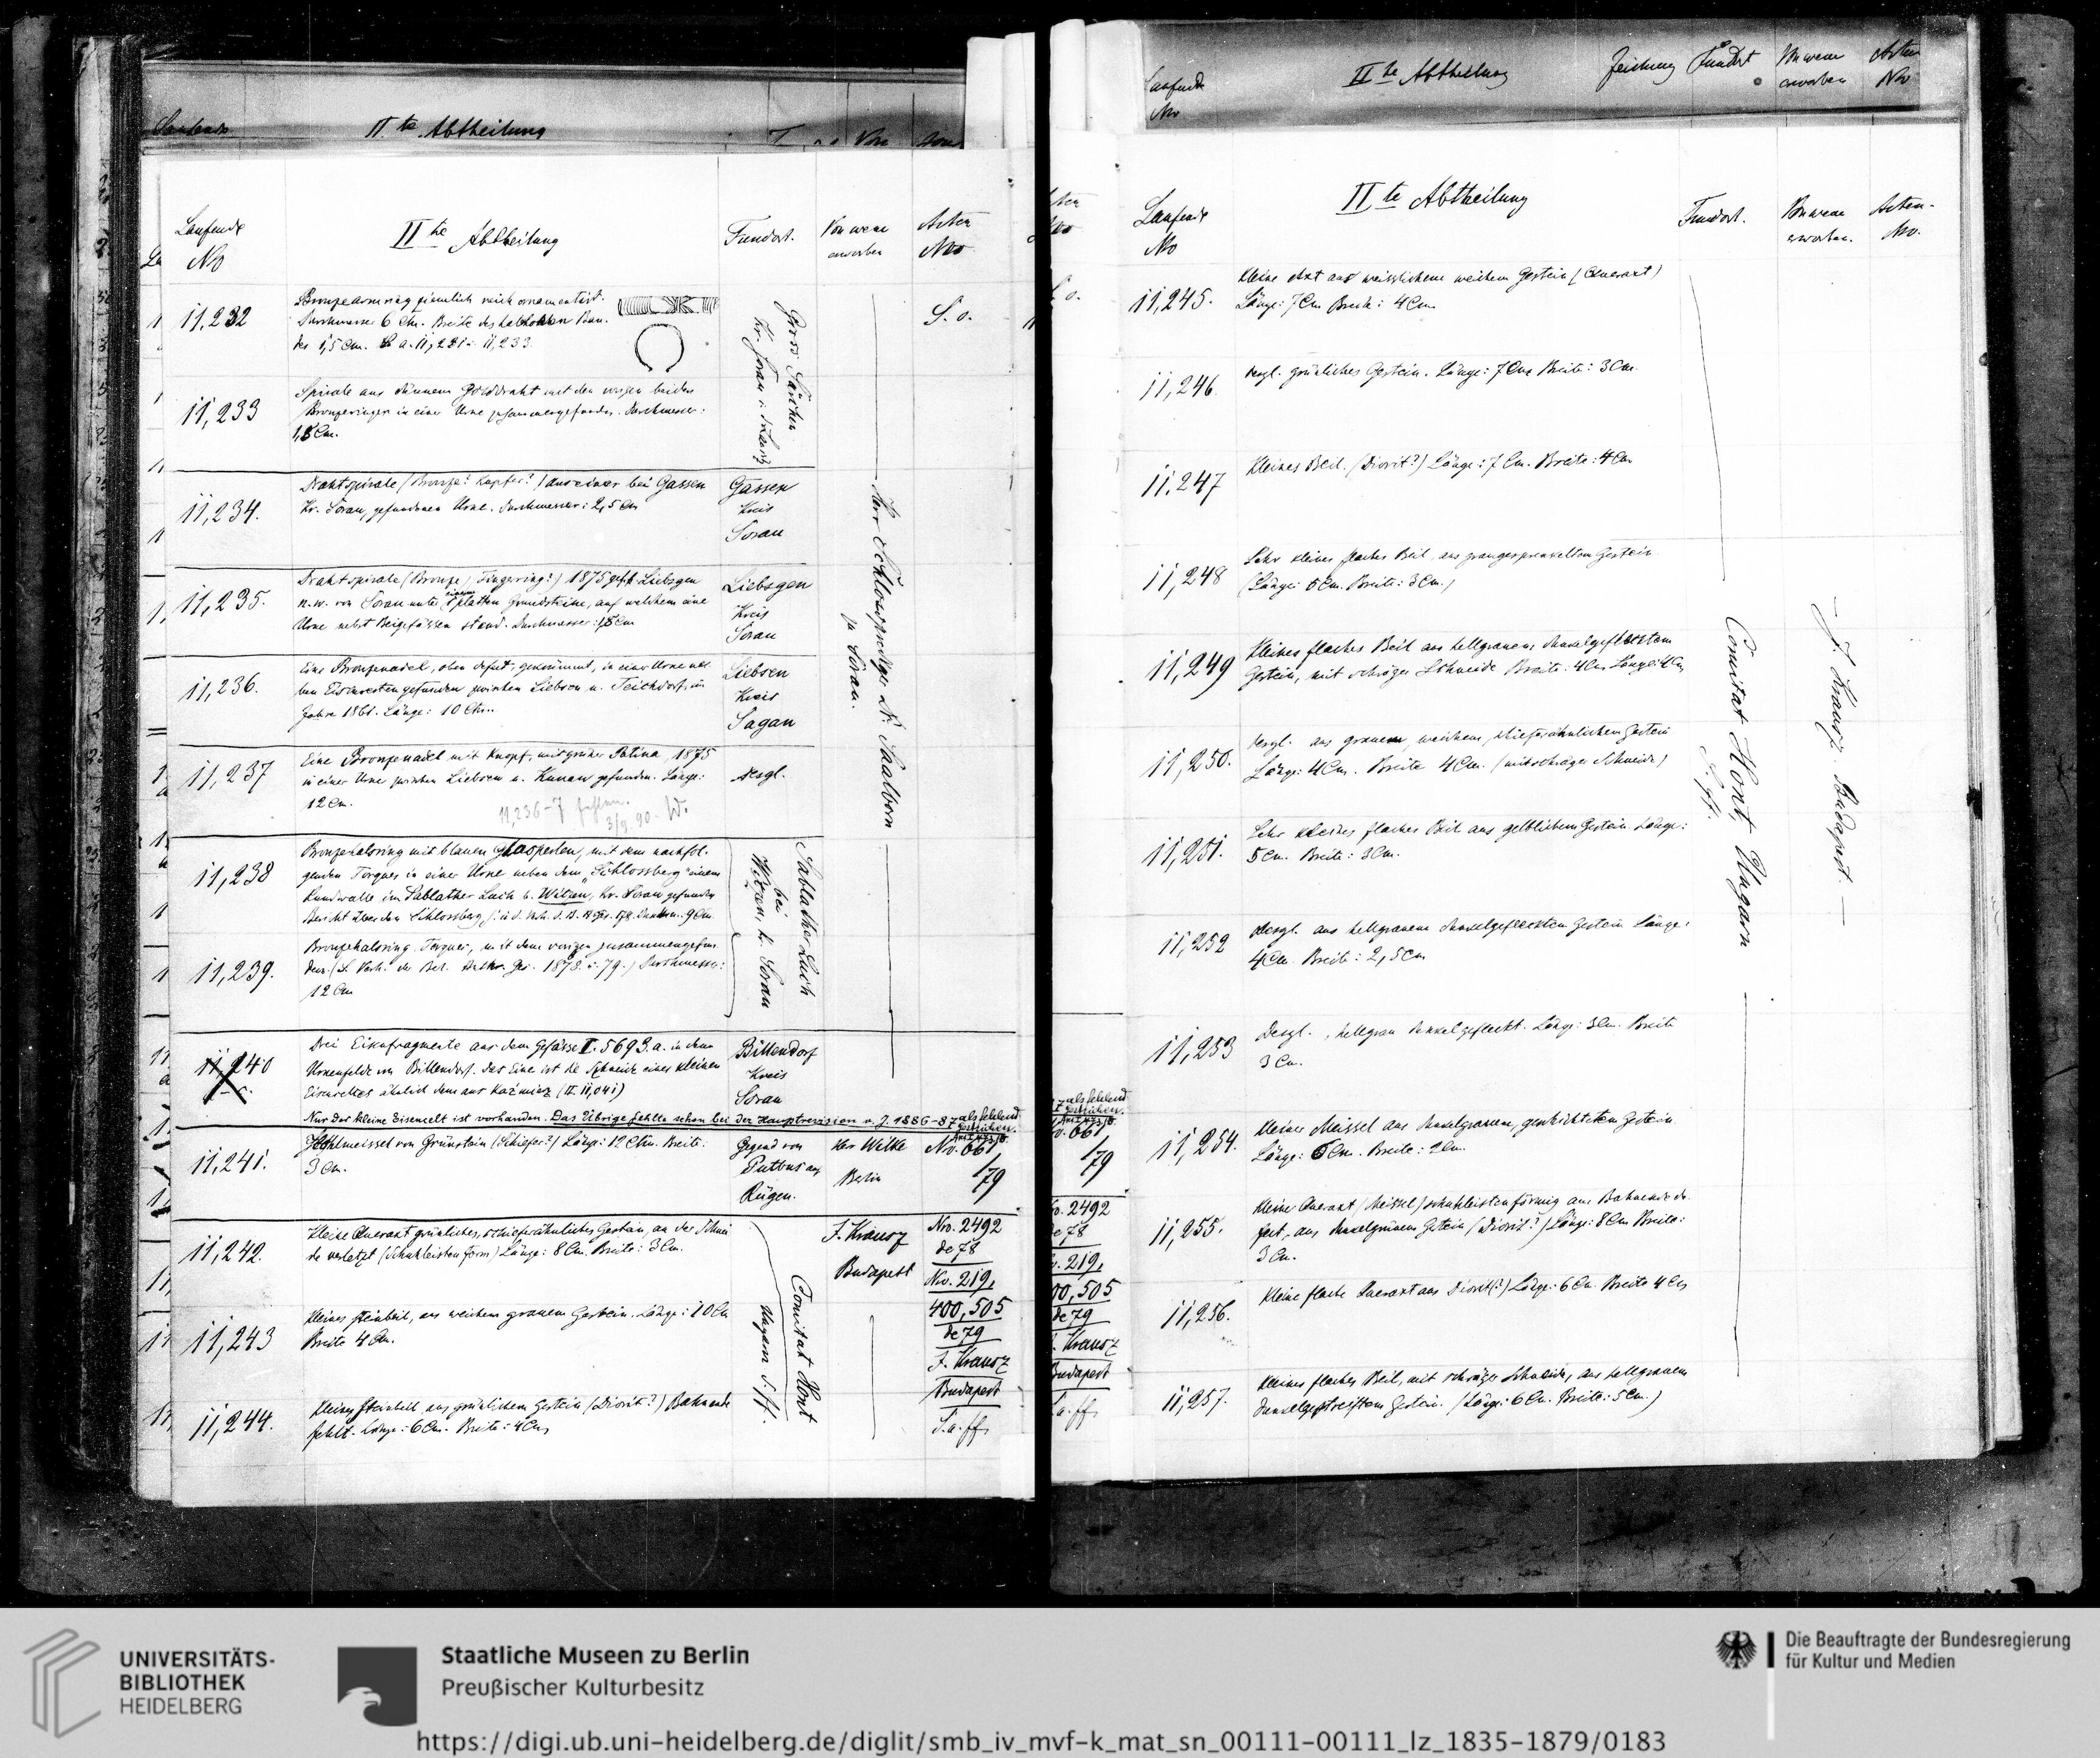 Laufende
IIte Abtheilung
Laufende
No
IIte Abtheilung
Fundort.
Von wem
erworben
Acten
No
11,232
Bronzearmring ziemlich reich ornamentirt.
Durchmesser 6 Cm. Breite des hohlen Ban-
des 1,5 Cm. S. a. 11,231 u. 11,233.
S. o.
Gross Särchen
Kr. Sorau
11,233
Spirale aus dünnem Golddraht mit den vorigen beiden
Bronzeringen in einer Urne zusammengefunden. Durchmesser:
1,5 Cm.
11,234.
Drahtspirale (Bronze? Kupfer?) aus einer bei Gassen
Kr. Sorau, gefundenen Urne. Durchmesser: 2,5 Cm
Gassen
Kreis
Sorau
Herr Schlossprediger Saalborn
zu Sorau.
11,235.
Drahtspirale (Bronze, Fingerring?) 1875 gef. Liebsgen
n. w. von Sorau unter einem platten Grundsteine, auf welchem eine
Urne nebst Beigefässen stand. Durchmesser: 1,5 Cm
Liebsgen
Kreis
Sorau
11,236.
Eine Bronzenadel, oben defect, gekrümmt, in einer Urne ne-
ben Eisenresten gefunden zwischen Liebsen u. Teichdorf, im
Jahre 1861. Länge: 10 Ctm.
Liebsen
Kreis
Sagan
11,237
Eine Bronzenadel mit Knopf, mit grüner Patina, 1875
in einer Urne zwischen Liebsen u. Kunau gefunden. Länge:
12 Cm.
desgl.
11,236-7 fehlen.
3/9. 90. W.
11,238
Bronzehalsring mit blauen Glasperlen, mit dem nachfol-
genden Torques in einer Urne neben dem "Schlossberg" einem
Rundwalle im Sablather Luch b. Witzen, Kr. Sorau gefunden
Bericht über den Schlossberg 9 Cm.
Sablather Luch
bei
Witzen, Kr. Sorau
11,239.
Bronzehalsring, Torques, mit dem vorigen zusammengefun-
den. (S. Verh. der Berl. Anthr. Ges. 1878. 79.) Durchmesser:
12 Cm
11,240
Drei Eisenfragmente aus dem Gefässe II. 5693.a. in dem
Urnenfelde von Billendorf. Das Eine ist die Schneide eines kleinen
Eisenceltes ähnlich dem aus Kazmierz (II 11,041)
Billendorf
Kreis
Sorau
Nur der kleine Eisencelt ist vorhanden. Das Übrige fehlte schon bei der Hauptrevision v. J. 1886-87 als fehlend
gestrichen.
11,241.
Hohlmeissel von Grünstein (Schiefer?) Länge: 12 Ctm. Breite:
3 Cm.
Gegend von
Putbus auf
Rügen.
Herr Wilke
Berlin
No. 661
/79
11,242.
Kleine Queraxt grünliches, schieferähnliches Gestein, an der Schnei-
de verletzt (Schuhleistenform) Länge: 8 Cm. Breite: 3 Cm.
J. Krausz
Budapest
No. 2492
de 78
No. 219,
400, 505
de 79
J. Krausz
Budapest
S. a. ff.
Comitat Hont
Ungarn S. ff.
11,243
Kleines Steinbeil, aus weichem grauem Gestein. Länge: 10 Cm
Breite 4 Cm.
11,244.
Kleines Steinbeil aus grünlichem Gestein (Diorit?) Bahnende
fehlt. Länge: 6 Cm. Breite: 4 Cm
Laufende
No
IIte Abtheilung
Zeichnung
Fundort
Von wem
erworben
Acten
No
Laufende
No
IIte Abtheilung
Fundort.
Von wem
erworben.
Acten-
No.
11,245.
Kleine Axt aus weisslichem weichem Gestein (Queraxt)
Länge: 7 Cm Breite: 4 Cm
11,246
desgl. grünliches Gestein. Länge: 7 Cm Breite: 3 Cm.
11,247
Kleines Beil. (Diorit?) Länge: 7 Cm. Breite: 4 Cm
11,248
Sehr kleines flaches Beil, aus graugesprenkeltem Gestein
(Länge: 5 Cm. Breite: 3 Cm.)
11,249
Kleines flaches Beil aus hellgrauem dunkelgeflecktem
Gestein, mit schräger Schneide Breite: 4 Cm Länge: 4 Cm
Comitat Hont, Ungarn
S. ff.
J. Krausz. Budapest.
11,250.
desgl. aus grauem, weichem, schieferähnlichem Gestein
Länge: 4 Cm. Breite 4 Cm. (mit schräger Schneide)
11,251.
Sehr kleines flaches Beil aus gelblichem Gestein. Länge:
5 Cm. Breite: 3 Cm.
11,252
desgl. aus hellgrauem dunkelgefleckten Gestein Länge:
4 Cm. Breite: 2,5 Cm
11,253
Desgl., hellgrau dunkelgefleckt. Länge: 3 Cm. Breite
3 Cm.
11,254.
Kleiner Meissel aus dunkelgrauem, geschichtetem Gestein.
Länge: 6 Cm. Breite: 2 Cm.
11,255.
Kleine Queraxt (Meissel) schuhleistenförmig am Bahnende de-
fect, aus dunkelgrünem Gestein (Diorit?) Länge: 8 Cm Breite:
3 Cm.
11,256.
Kleine flache Queraxt aus Diorit(?) Länge: 6 Cm. Breite 4 Cm
11,257.
Kleines flaches Beil, mit schräger Schneide, aus hellgrauem
dunkelgestreiftem Gestein. (Länge: 6 Cm. Breite: 5 Cm.)
UNIVERSITÄTS-
BIBLIOTHEK
HEIDELBERG
Staatliche Museen zu Berlin
Preußischer Kulturbesitz
Die Beauftragte der Bundesregierung
für Kultur und Medien
https://digi.ub.uni-heidelberg.de/diglit/smb_iv_mvf-k_mat_sn_00111-00111_lz_1835-1879/0183